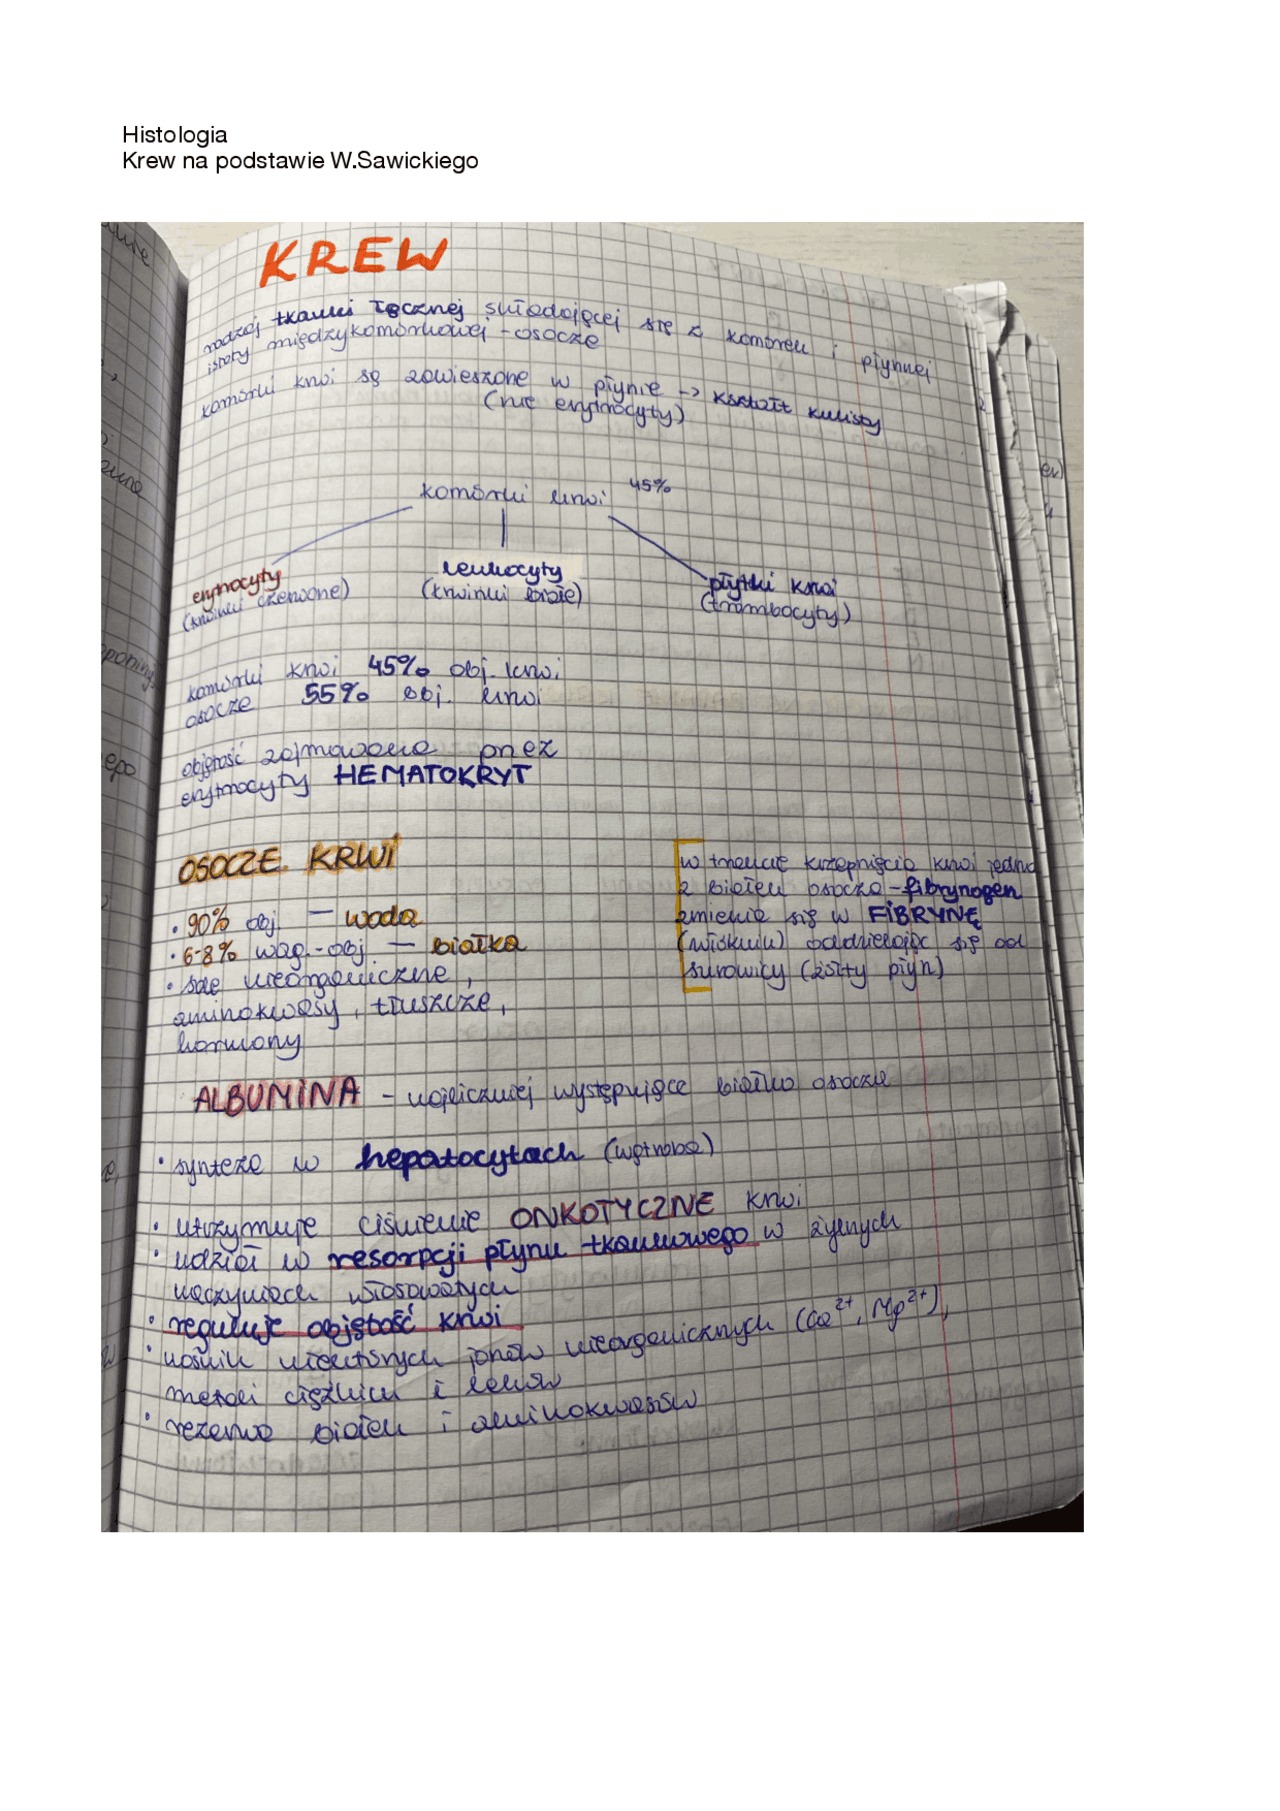 Histologia
Krew na podstawie W.Sawickiego
KREW
rodzaj tkanki łącznej składającej się z komórek i płynnej
istoty międzykomórkowej - osocze
komórki krwi są zawieszone w płynie -> kształt kulisty
(nie erytrocyty)
komórki krwi 45%
erytrocyty
(krwinki czerwone)
leukocyty
(krwinki białe)
płytki krwi
(trombocyty)
komórki krwi 45% obj. krwi
osocze 55% obj. krwi
objętość zajmowana przez
erytrocyty HEMATOKRYT
OSOCZE KRWI
• 90% obj. — woda
• 6-8% wag.-obj — białka
• sole nieorganiczne,
aminokwasy, tłuszcze,
hormony
w trakcie krzepnięcia krwi jedno
z białek osocza - fibrynogen
zmienia się w FIBRYNĘ
(włóknik) oddzielając się od
surowicy (żółty płyn)
ALBUMINA - najliczniej występujące białko osocza
• synteza w hepatocytach (wątroba)
• utrzymuje ciśnienie ONKOTYCZNE krwi
• udział w resorpcji płynu tkankowego w żylnych
naczyniach włosowatych
• reguluje objętość krwi
• nośnik niektórych jonów nieorganicznych (Ca²⁺, Mg²⁺),
metali ciężkich i leków
• rezerwa białek i aminokwasów